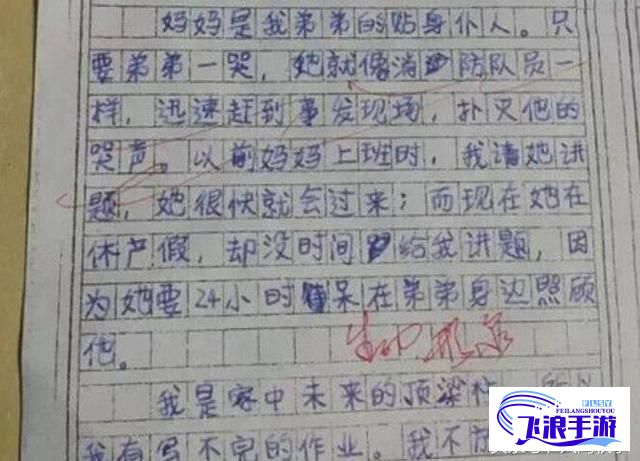 妈妈是我弟弟的贴身仆人。只
要弟弟一哭，她就像消防队员一
样，迅速赶到事发现场，扑灭他的
哭声。以前妈妈上班时，我请她讲
题，她很快就会过来；而现在她在
休产假，却没时间给我讲题，因
为她要24小时呆在弟弟身边照顾
他。
生动形象
我是家中未来的顶梁
我有写不完的作业。我不
飞浪手游
FEILANGSHOUYOU